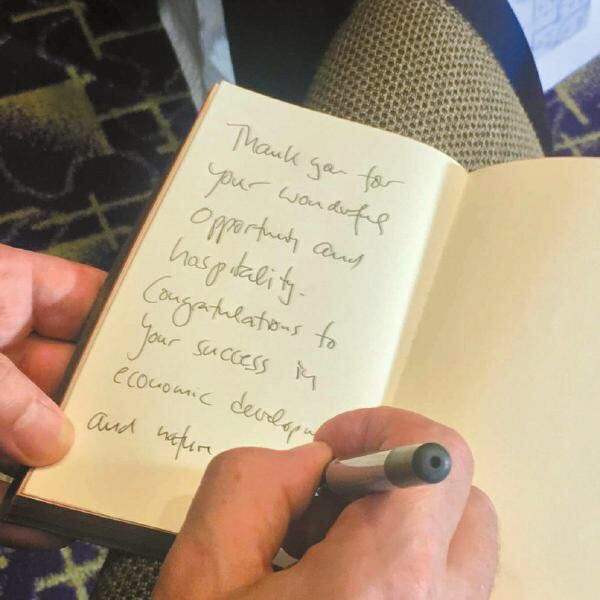 Thank you for
your wonderful
opportunity and
hospitality.
Congratulations to
your success in
economic develop
and nature